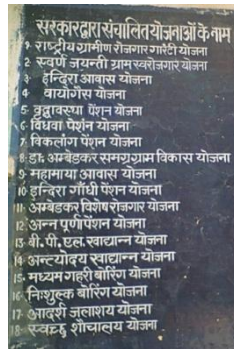 सरकार द्वारा संचालित योजनाओं के नाम
1- राष्ट्रीय ग्रामीण रोजगार गारंटी योजना
2- स्वर्ण जयन्ती ग्राम स्वरोजगार योजना
3 इन्दिरा आवास योजना
4 बायोगैस योजना
5 वृद्धावस्था पेंशन योजना
6- विधवा पेंशन योजना
7- विकलांग पेंशन योजना
8- डा. अम्बेडकर समग्र ग्राम विकास योजना
9- महामाया आवास योजना
10- इन्दिरा गाँधी पेंशन योजना
11- अम्बेडकर विशेष रोजगार योजना
12- अन्नपूर्णा पेंशन योजना
13- बी. पी. एल. खाद्यान्न योजना
14- अन्त्योदय खाद्यान्न योजना
15- मध्यम गहरी बोरिंग योजना
16- निःशुल्क बोरिंग योजना
17- आदर्श जलाशय योजना
18- स्वच्छ शौचालय योजना